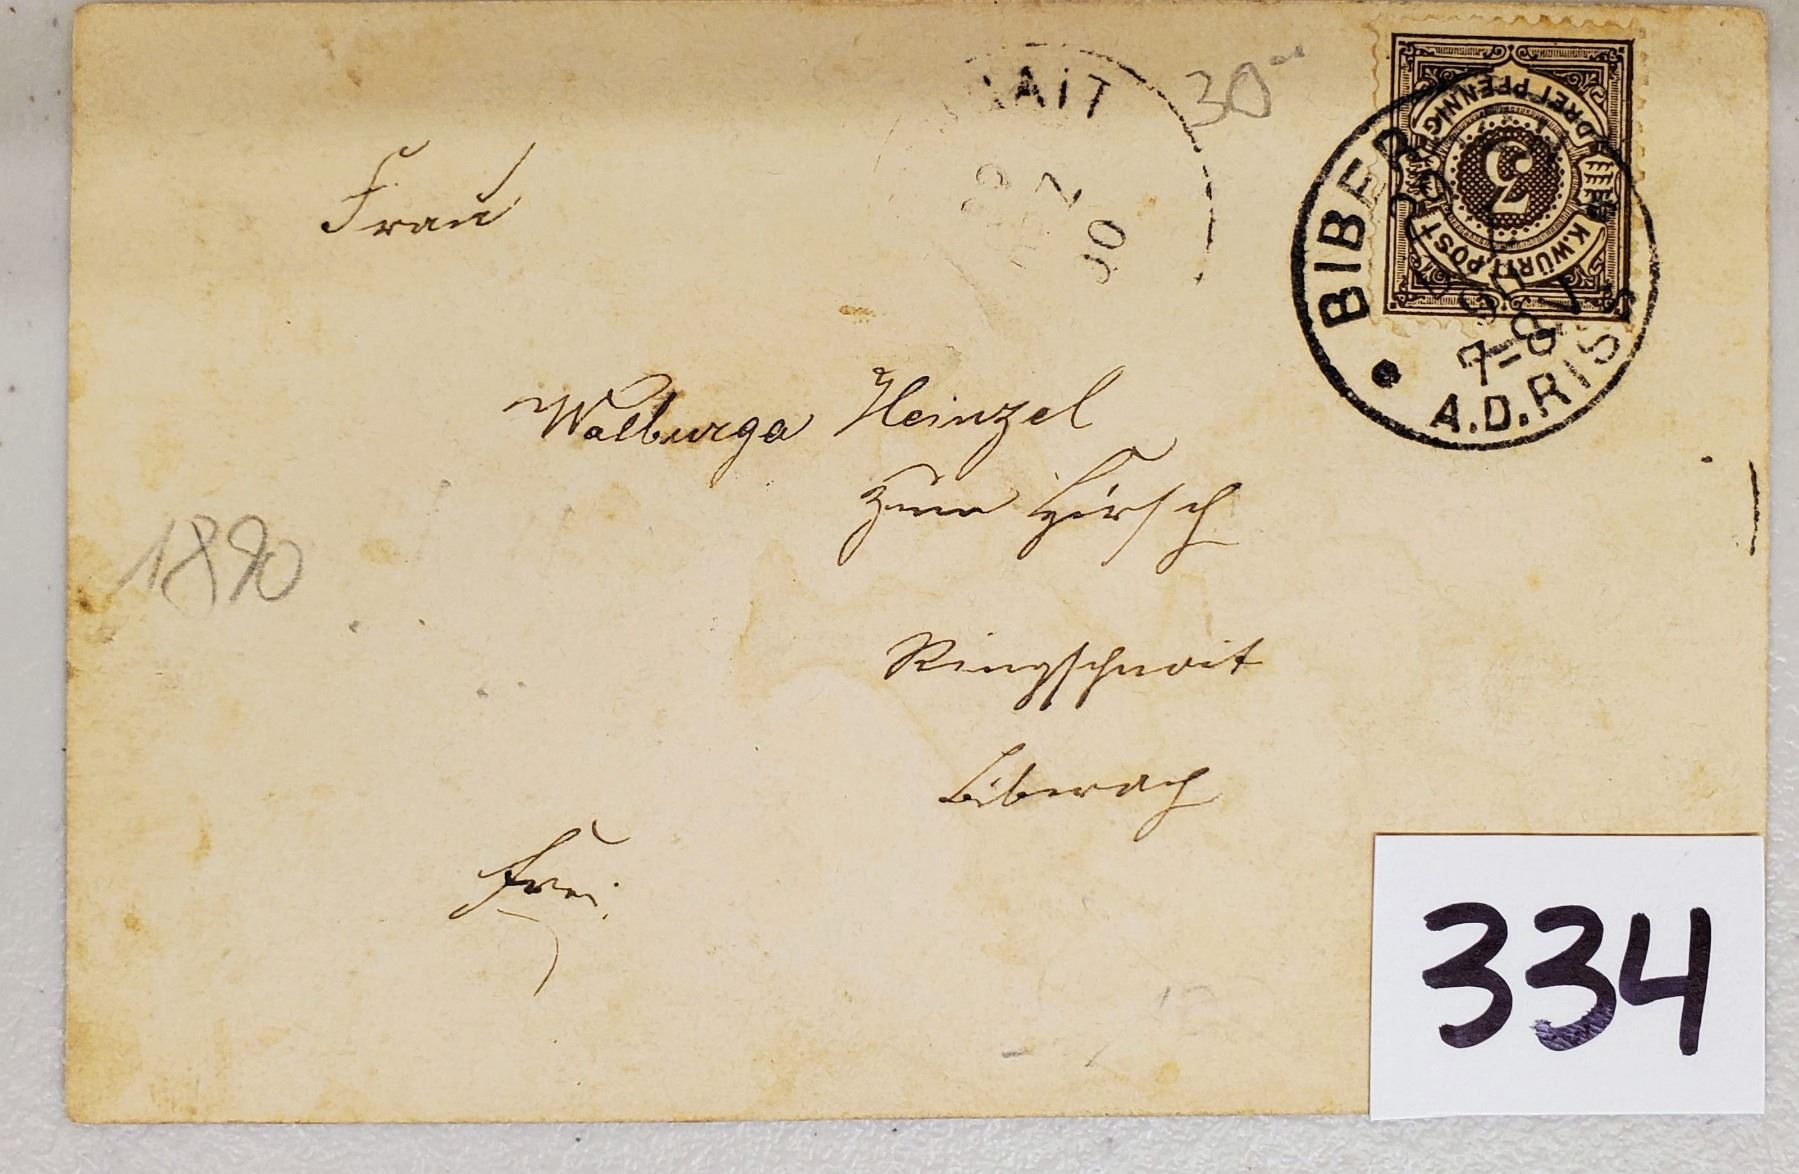 30
Frau
Walburga Heinzel
zum Hirsch
Ringschnait
Biberach
Frei.
1890
BIBER
A.D. RISS
7-8
K. WÜRTT. POST
DREI PFENNIG
3
AIT
334